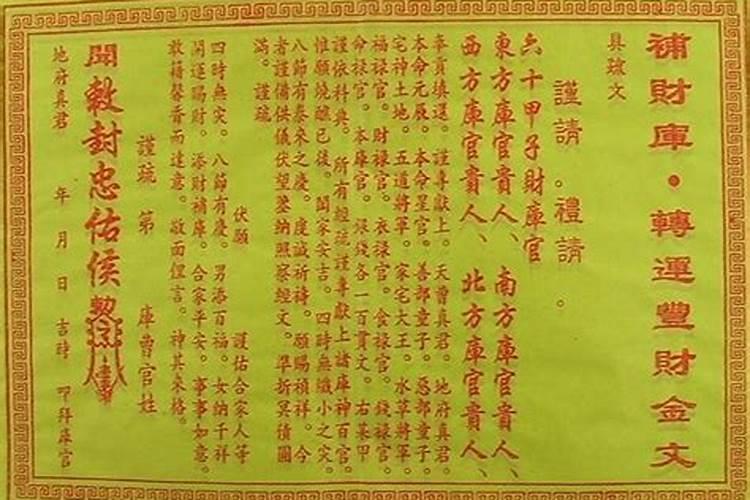 補財庫・轉運豐財金文
具疏文
謹請。禮請。
六十甲子財庫官
東方庫官貴人、南方庫官貴人、
西方庫官貴人、北方庫官貴人、
奉貢填還。謹專獻上。天曹真君。地府真君。
本命元辰。本命星官。善部童子。惡部童子。
宅神土地。五道將軍。家宅大王。水草將軍。
福祿官。財祿官。衣祿官。食祿官。錢祿官。
命祿官。本庫官。銀錢各一百貫文。右某甲
謹依科典。所有經疏謹專獻上諸庫神百官。
惟願燒醮已後。閤家安吉。四時無纖小之灾。
八節有泰來之慶。虔誠祈禱。願賜禎祥。今
者謹備供儀伏望鑒納照察經文。準折冥債圓
滿。謹疏。
伏願　謹佑合家人等
四時無灾。八節有慶。男添百福。女納千祥
開運賜財。添財補庫。合家平安。事事如意。
散籍馨香而達意。敬面俚言。神其來格。
謹疏　第　庫曹官姓
開敕封忠佑侯
地府真君　年　月　日　吉時　叩拜庫官